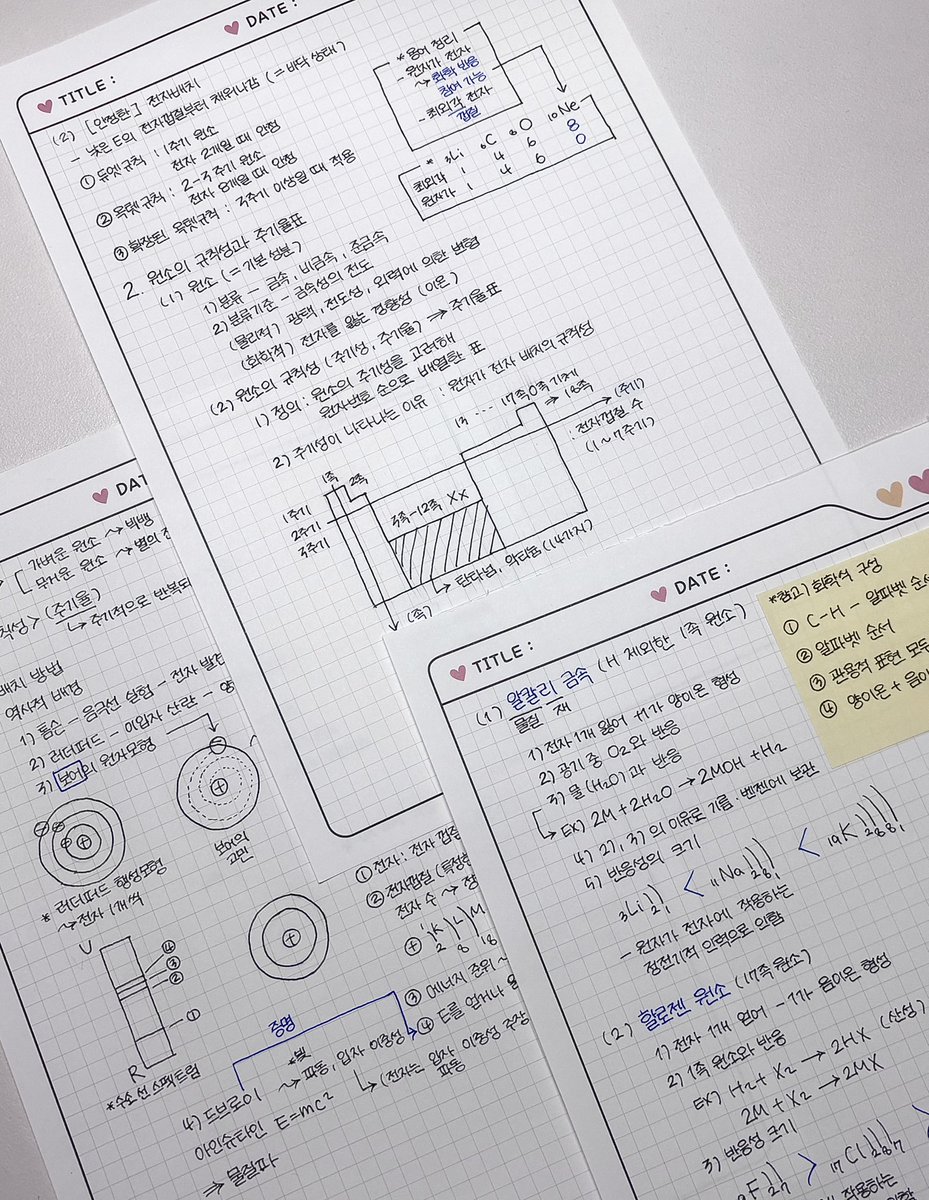 DATE :
TITLE :
(2) [안정한] 전자배치
- 낮은 E의 전자껍질부터 채워나감 (= 바닥 상태)
① 듀엣규칙 : 1주기 원소
전자 2개일 때 안정
② 옥텟규칙 : 2-3주기 원소
전자 8개일 때 안정
③ 확장된 옥텟규칙 : 3주기 이상일 때 적용
* 용어 정리
- 원자가 전자
↝ 화학 반응
참여 가능
- 최외각 전자
껍질
* ₃Li ₆C ₈O ₁₀Ne
최외각 1 4 6 8
원자가 1 4 6 0
2. 원소의 규칙성과 주기율표
(1) 원소 (= 기본 성분)
1) 분류 - 금속, 비금속, 준금속
2) 분류기준 - 금속성의 전도
(물리적) 광택, 전도성, 외력에 의한 변형
(화학적) 전자를 잃는 경향성 (이온)
(2) 원소의 규칙성 (주기성, 주기율) → 주기율표
1) 정의 : 원소의 주기성을 고려해
원자번호 순으로 배열한 표
2) 주기성이 나타나는 이유 : 원자가 전자 배치의 규칙성
1족 2족
13 ... 17족 0족 기체
→ 18족
(주기)
: 전자껍질 수
(1~7주기)
1주기
2주기
3주기
3족-12족 XX
↳ 란타넘, 악티늄 (14가지)
(족)
DAT
[ 가벼운 원소 ↝ 빅뱅
무거운 원소 ↝ 별의 진
칙성> (주기율)
↳ 주기적으로 반복되
배치 방법
역사적 배경
1) 톰슨 - 음극선 실험 - 전자 발견
2) 러더퍼드 - α입자 산란 - 양
3) 보어의 원자모형
보어의
고민
* 러더퍼드 행성모형
↝ 전자 1개씩
V
④
③
②
①
R
*수소 선 스펙트럼
① 전자 : 전자 껍질
② 전자껍질 (특정한
전자 수 ↝ 정
⊕ )K )L )M
2 8 18
③ 에너지 준위 ~
④ E를 얻거나
증명
*빛
4) 드브로이 ↝ 파동, 입자 이중성
↳ (전자는 입자 이중성 주장
파동
아인슈타인 E=mc²
⇒ 물질파
DATE :
TITLE :
(1) 알칼리 금속 (H 제외한 1족 원소)
물질 재
1) 전자 1개 잃어 +1가 양이온 형성
2) 공기 중 O₂와 반응
3) 물(H₂O)과 반응
↳ EX) 2M + 2H₂O → 2MOH + H₂
4) 2), 3)의 이유로 기름·벤젠에 보관
5) 반응성의 크기
₃Li )) 2 1 < ₁₁Na ))) 2 8 1 < ₁₉K )))) 2 8 8 1
- 원자가 전자에 작용하는
정전기적 인력으로 인함
(2) 할로젠 원소 (17족 원소)
1) 전자 1개 얻어 -1가 음이온 형성
2) 1족 원소와 반응
EX) H₂ + X₂ → 2HX (산성)
2M + X₂ → 2MX
3) 반응성 크기
F )) 2 7 > ₁₇Cl ))) 2 8 7 >
작용하는
*참고) 화학식 구성
① C-H - 알파벳 순서
② 알파벳 순서
③ 관용적 표현 모두
④ 양이온 + 음이